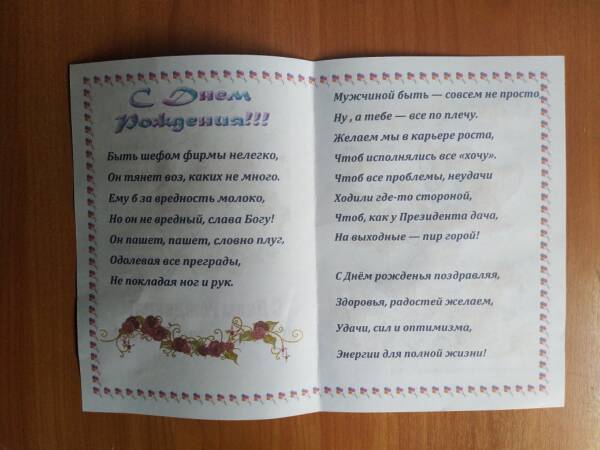 С Днем
Рождения!!!
Быть шефом фирмы нелегко,
Он тянет воз, каких не много.
Ему б за вредность молоко,
Но он не вредный, слава Богу!
Он пашет, пашет, словно плуг,
Одолевая все преграды,
Не покладая ног и рук.
Мужчиной быть — совсем не просто,
Ну , а тебе — все по плечу.
Желаем мы в карьере роста,
Чтоб исполнялись все «хочу».
Чтоб все проблемы, неудачи
Ходили где-то стороной,
Чтоб, как у Президента дача,
На выходные — пир горой!
С Днём рожденья поздравляя,
Здоровья, радостей желаем,
Удачи, сил и оптимизма,
Энергии для полной жизни!